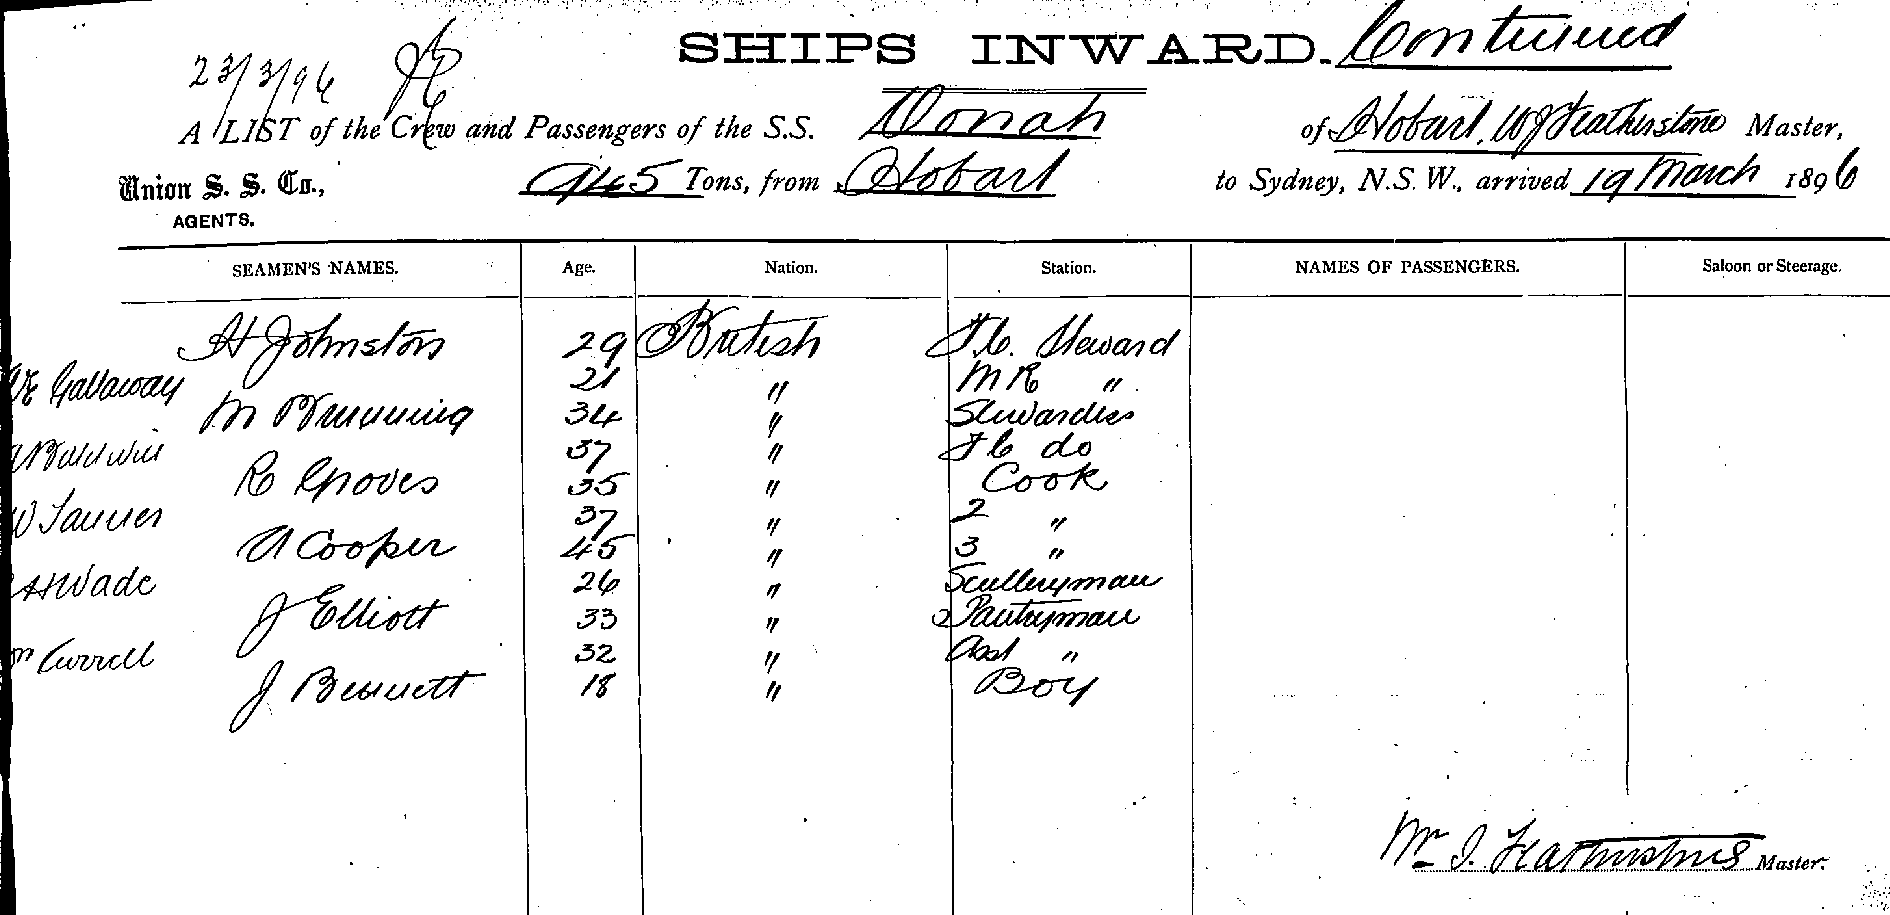 SHIPS INWARD. Continued
23/3/96
A LIST of the Crew and Passengers of the S.S. Oonah of Hobart, W J Featherstone Master,
Union S. S. Co., 945 Tons, from Hobart to Sydney, N.S.W., arrived 19 March 1896
AGENTS.
SEAMEN'S NAMES. Age. Nation. Station. NAMES OF PASSENGERS. Saloon or Steerage.
H Johnston 29 British F.C. Steward
Gallaway 21 " M R "
M Brunning 34 " Stewardess
Baldwin 37 " F C do
R Groves 35 " Cook
W Tanner 37 " 2 "
A Cooper 45 " 3 "
A H Wade 26 " Sculleryman
J Elliott 33 " 2 Pantryman
Currell 32 " Asst "
J Bennett 18 " Boy
Wm J. Featherstone Master.